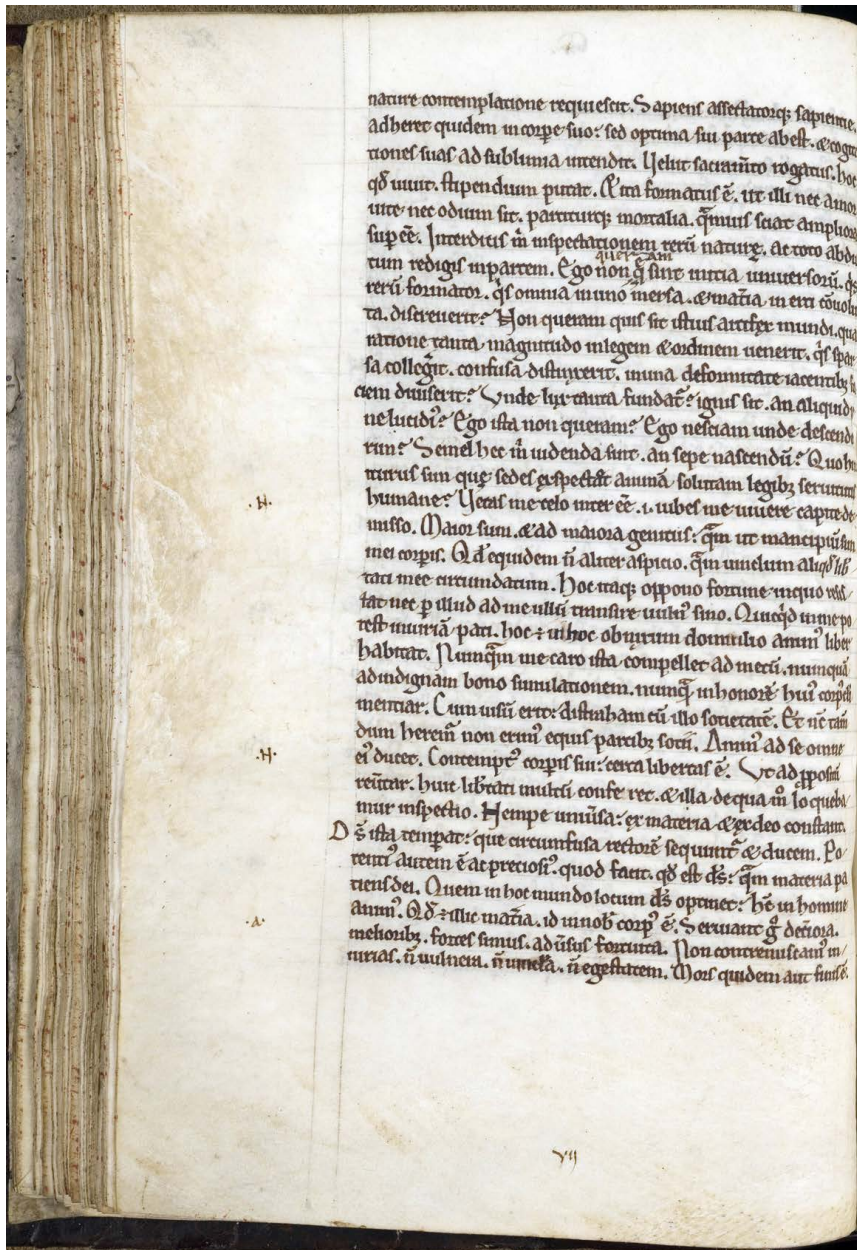 nature contemplatione requiescit. Sapiens assectatorq; sapientie.
adheret quidem in corpe suo: sed optima sui parte abest. & cogita
tiones suas ad sublimia intendit. Velut sacram̄to rogatus. hoc
qđ uiuit. stipendium putat. & ita formatus ē. ut illi nec amor
uite nec odium sit. patiturq; mortalia. q̄muis sciat ampliora
sup eē. Interdicis m̄ inspectationem rerū nature. ac toto abduc
queram
tum redigis in partem. Ego non q̄ sint initia uniuersorū. q̇s
rerū formator. q̇s omnia in uno m̄ersa. & mat̄ia in erti c̄ouolu
ta. discreuerit? Non queram quis sit istius artifex mundi. qua
ratione tanta magnitudo in legem & ordinem uenerit. q̇s spar
sa collegit. confusa distinxerit. in una deformitate iacentib; fa
ciem diuiserit? Vnde lux tanta fundat̄? ignis sit. an aliquid ig
ne lucidi'? Ego ista non queram? Ego nesciam unde descendi
rim? Semel hec m̄ uidenda sint. an sepe nascendū? Quo hinc
iturus sim que sedes exspectat animā solutam legib; seruitutis
.N.
humane? Vetas me celo inter eē. i. iubes me uiuere capite de
misso. Maior sum. & ad maiora genitus: q̄m ut mancipiū sim
mei corpis. Qđ equidem n̄ aliter aspicio. q̄m uinclum aliqđ lib
tati mee circundatum. Hoc itaq; oppono fortune in quo resis
tat nec p illud ad me ullū transire uuln' sino. Quicq̇d in me po
test iniuriā pati. hoc ÷ in hoc obnixum domicilio anim' liber
habitat. Numq̄m me caro ista compellet ad metū. numquā
ad indignam bono simulationem. numq̄ in honorē hui' corpis
mentiar. Cum uisū erit: distraham cū illo societatē. Et nc̄ tam
dum herem' non erim' equis partib; socii. Anim' ad se omne
.N.
ei' ducet. Contempt' corpis sui: certa libertas ē. Vt ad ppositū
reūtar. huic lib̄tati multū confe ret. & illa de qua m̄ loqueba
mur inspectio. Nempe uniūsa: ex materia & ex deo constant.
D s̄ ista temperat: que circumfusa rectorē sequunt̄ & ducem. Po
tenti' autem ē ac preciosi'. quod facit. qđ est ds̄: q̄m materia pa
tiens dei. Quem in hoc mundo locum ds̄ optinet: hc̄ in homine
.a.
anim'. Qđ ÷ illic mat̄ia. id in nob̄ corp' ē. Seruiant g deṫiora.
melioribz. fortes simus. ad ūsus fortuita. Non contremiscam' in
iurias. n̄ uulnera. n̄ uincla. n̄ egestatem. Mors quidem aut finis ē.
VII